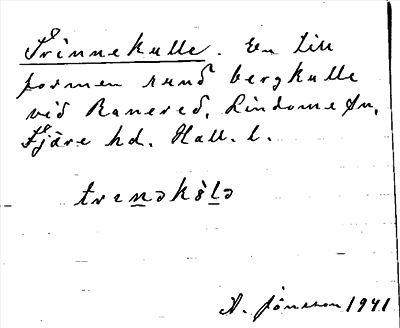 Trinnekulle. En till
formen rund bergkulle
vid Ranered, Lindome sn,
Fjäre hd. Hall. l.
trenəkòlə
A. Jonsson 1941